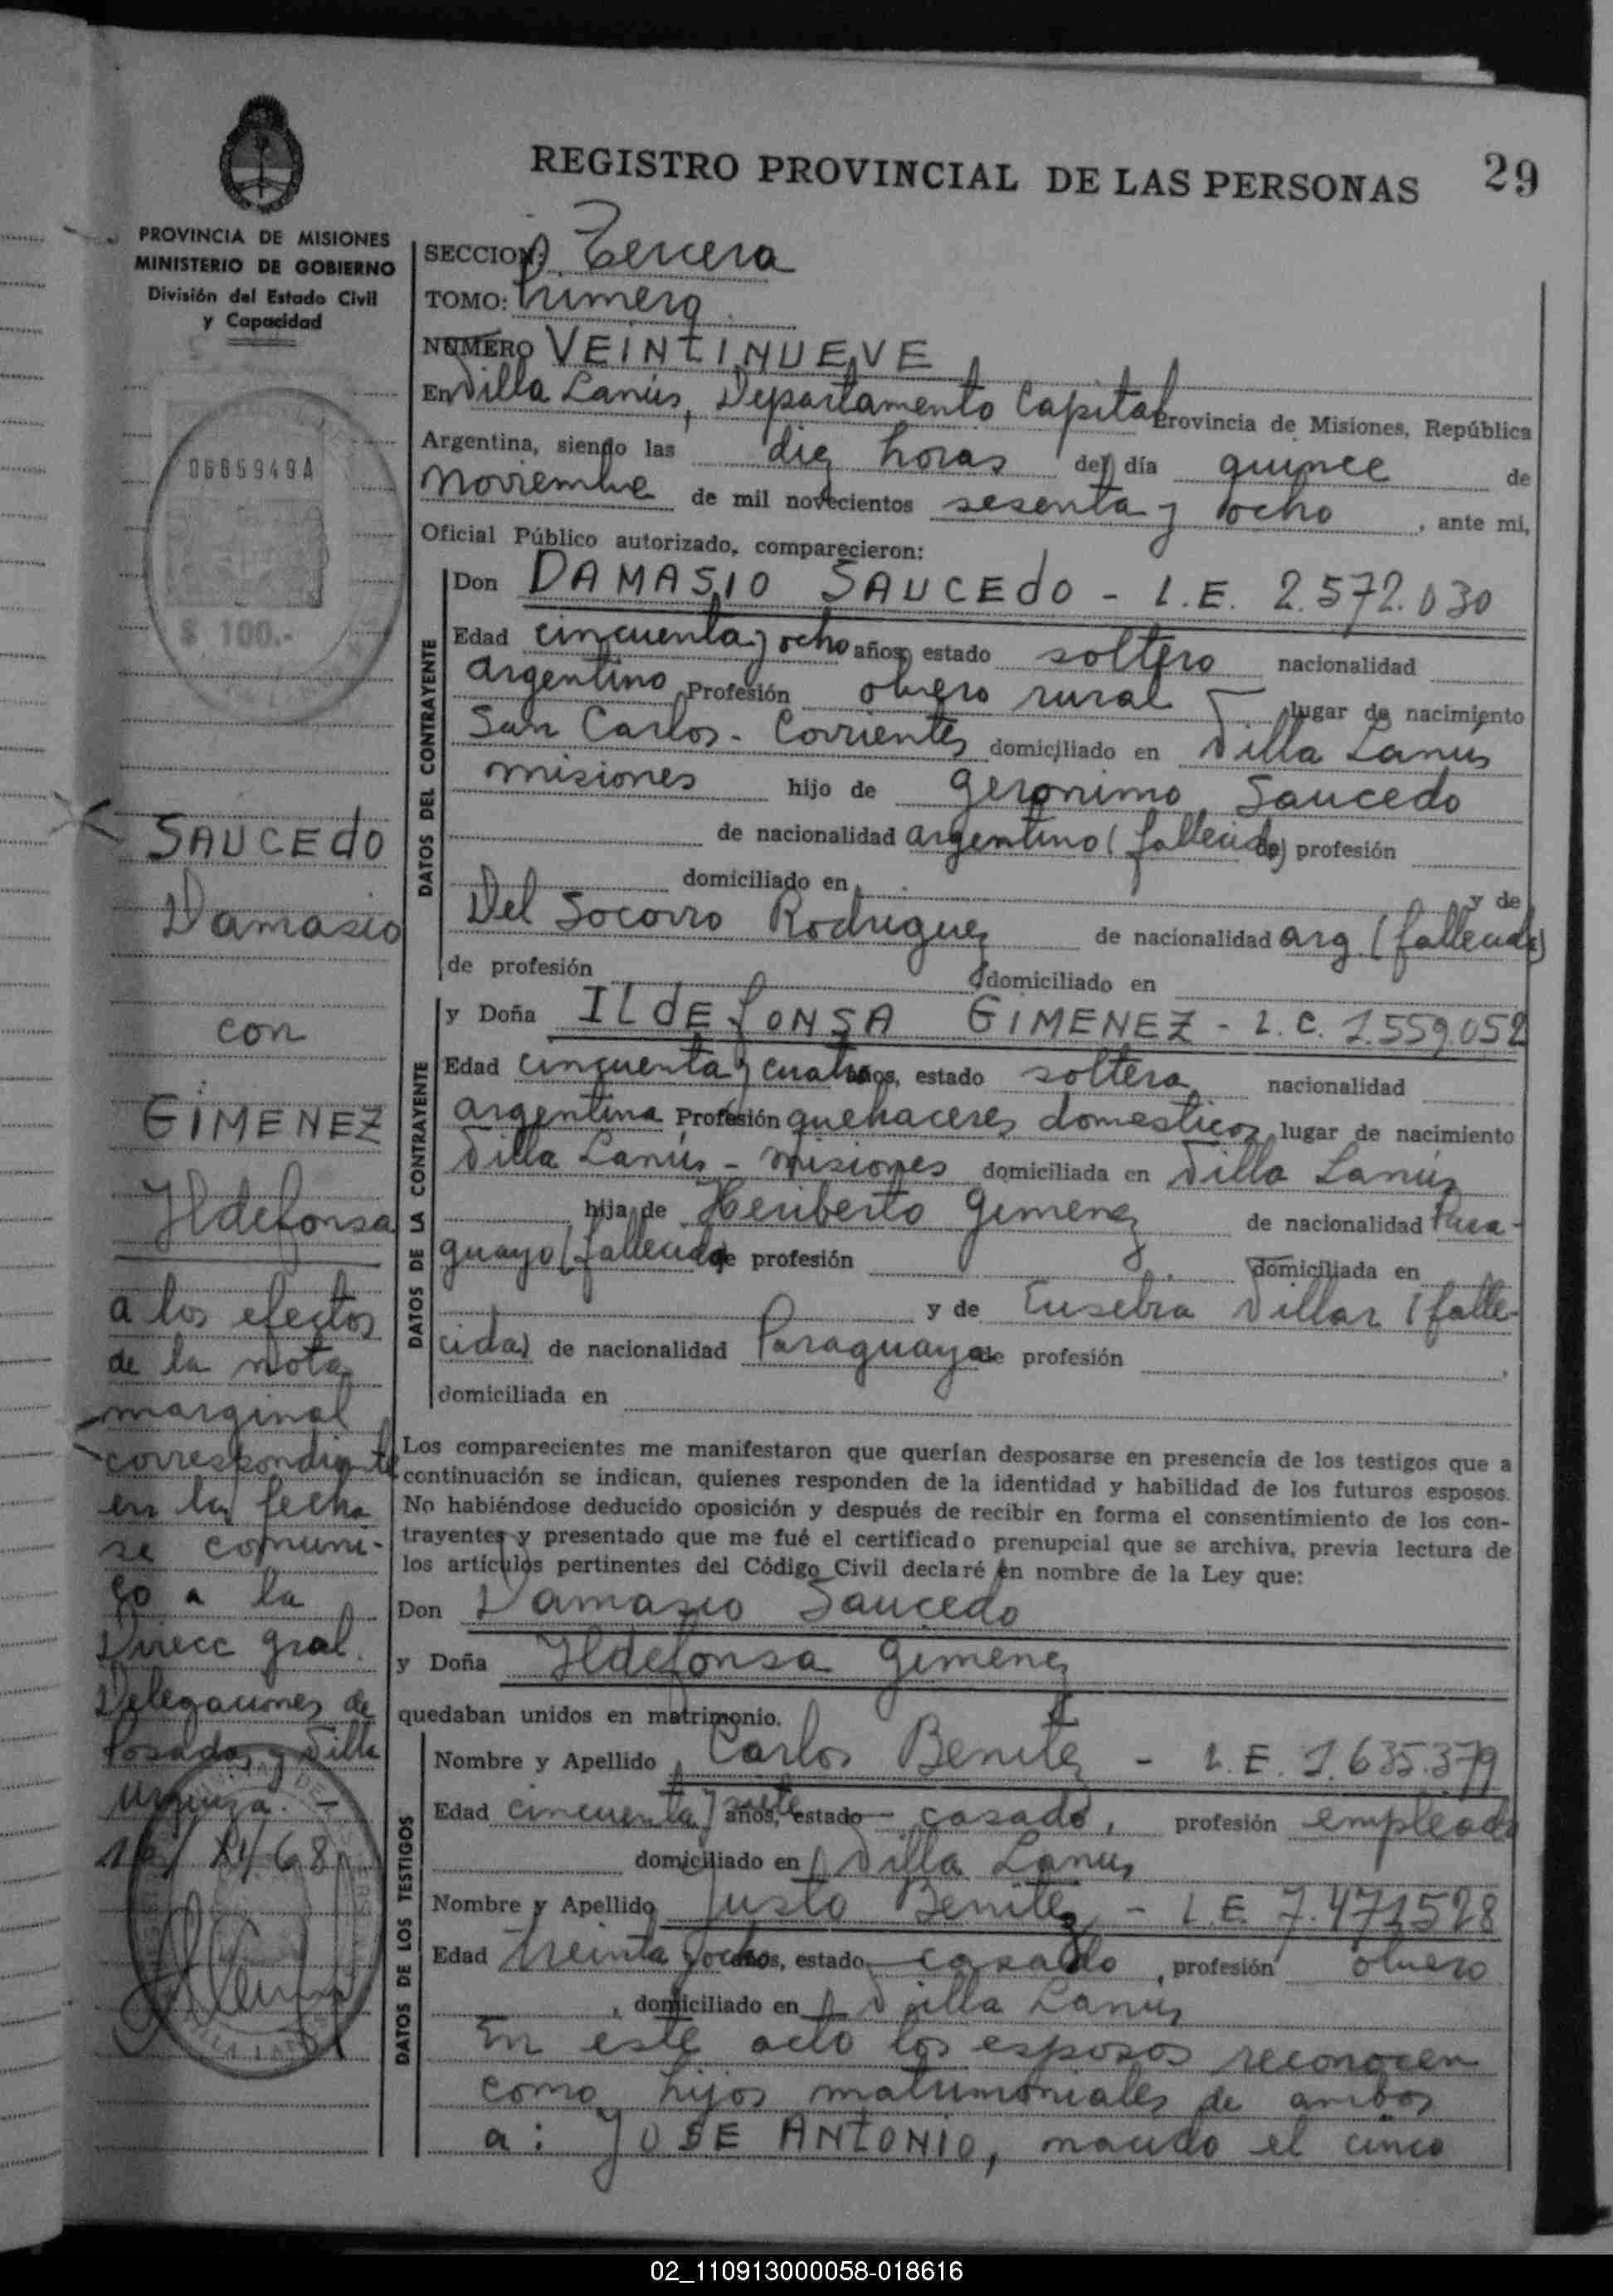 REGISTRO PROVINCIAL DE LAS PERSONAS
29
PROVINCIA DE MISIONES
MINISTERIO DE GOBIERNO
División del Estado Civil
y Capacidad
0665949A
$ 100.-
SAUCEdO
Damasio
con
GIMENEZ
Ildefonsa
a los efectos
de la nota
marginal
correspondiente
en la fecha
se comuni-
co a la
Direcc Gral.
Delegaciones de
Posadas y Villa
Urquiza. -
/XI/68
SECCION: Tercera
TOMO: Primero
NUMERO VEINTINUEVE
En Villa Lanús, Departamento Capital Provincia de Misiones, República
Argentina, siendo las diez horas del día quince de
Noviembre de mil novecientos sesenta y ocho, ante mi,
Oficial Público autorizado, comparecieron:
DATOS DEL CONTRAYENTE
Don DAMASIO SAUCEdO - L.E. 2.572.030
Edad cincuenta y ocho años, estado soltero nacionalidad
argentino Profesión obrero rural lugar de nacimiento
San Carlos - Corrientes domiciliado en Villa Lanús
Misiones hijo de Geronimo Saucedo
de nacionalidad argentino (fallecido) profesión
domiciliado en y de
Del Socorro Rodriguez de nacionalidad arg (fallecida)
de profesión domiciliado en
DATOS DE LA CONTRAYENTE
y Doña ILdEfONSA GIMENEZ - L.C. 1.559.052
Edad cincuenta y cuatro años, estado soltera nacionalidad
argentina Profesión quehaceres domesticos lugar de nacimiento
Villa Lanús - Misiones domiciliada en Villa Lanús
hija de Heriberto Gimenez de nacionalidad Para-
guayo (fallecido) de profesión domiciliada en
y de Eusebia Villar (falle-
cida) de nacionalidad Paraguaya de profesión
domiciliada en
Los comparecientes me manifestaron que querían desposarse en presencia de los testigos que a
continuación se indican, quienes responden de la identidad y habilidad de los futuros esposos.
No habiéndose deducido oposición y después de recibir en forma el consentimiento de los con-
trayentes y presentado que me fué el certificado prenupcial que se archiva, previa lectura de
los artículos pertinentes del Código Civil declaré en nombre de la Ley que:
Don Damasio Saucedo
y Doña Ildefonsa Gimenez
quedaban unidos en matrimonio.
DATOS DE LOS TESTIGOS
Nombre y Apellido Carlos Benitez - L.E. 1.635.379
Edad cincuenta y siete años, estado casado, profesión empleado
domiciliado en Villa Lanus
Nombre y Apellido Justo Benitez - L.E. 7.471528
Edad treinta y ocho años, estado casado, profesión obrero
, domiciliado en Villa Lanus
En este acto los esposos reconocen
como hijos matrimoniales de ambos
a: JOSE ANTONIO, nacido el cinco
02_110913000058-018616